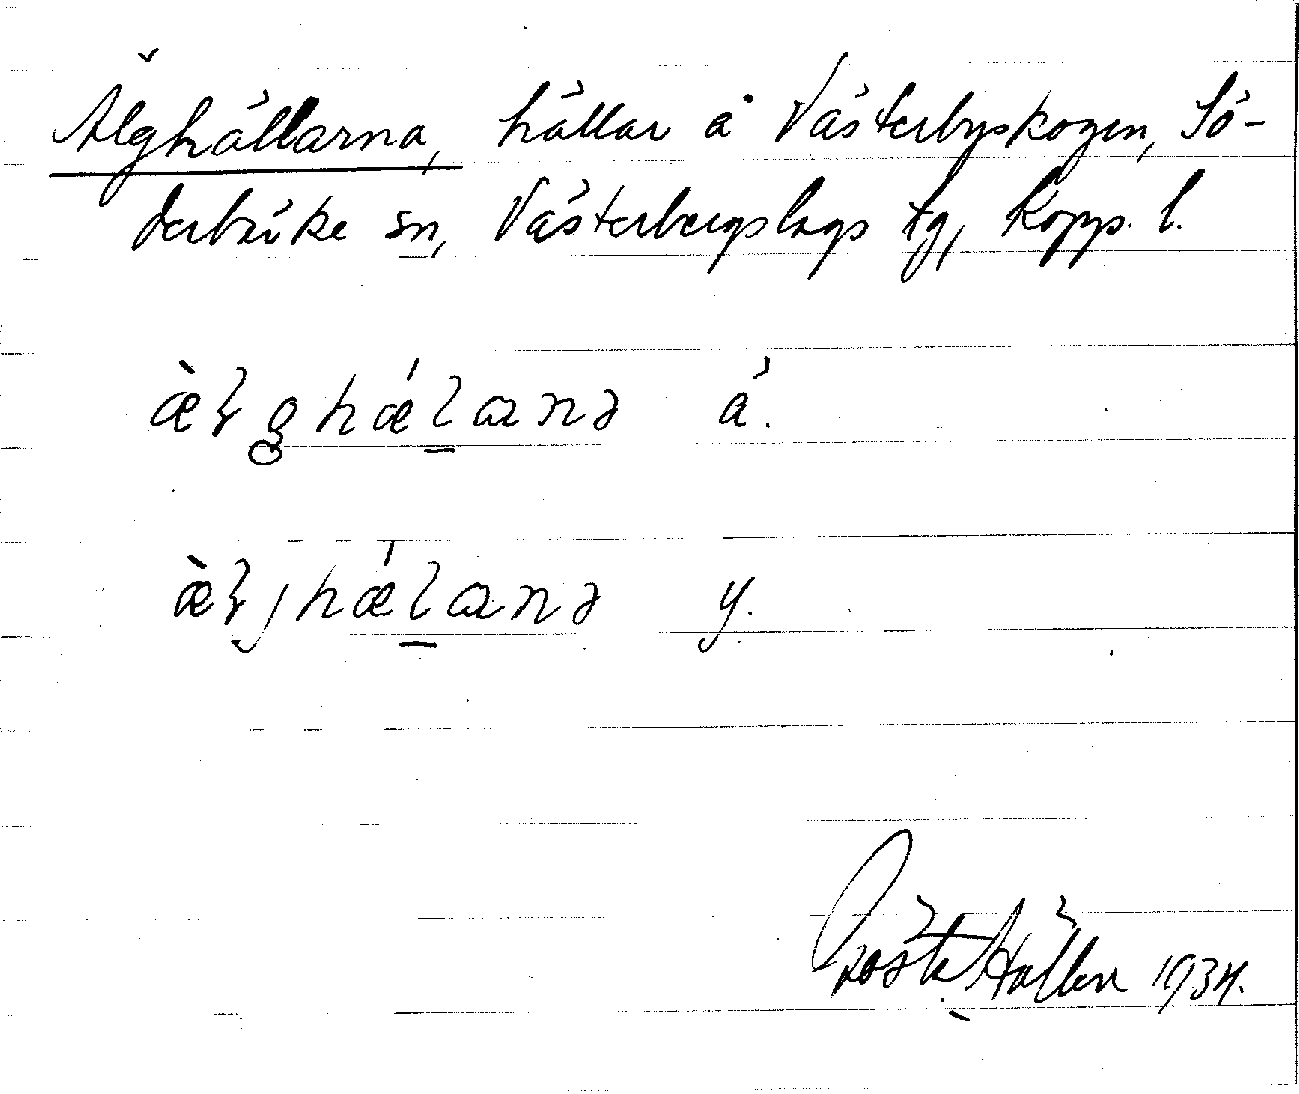 Älghällarna, hällar å Västerbyskogen, Sö-
derbärke sn, Västerbergslags tg, Kopps. l.
æ̀ɫg̥hǽl̠arnə ä.
æ̀ɫjhǽl̠arnə y.
Gösta Hallén 1934.